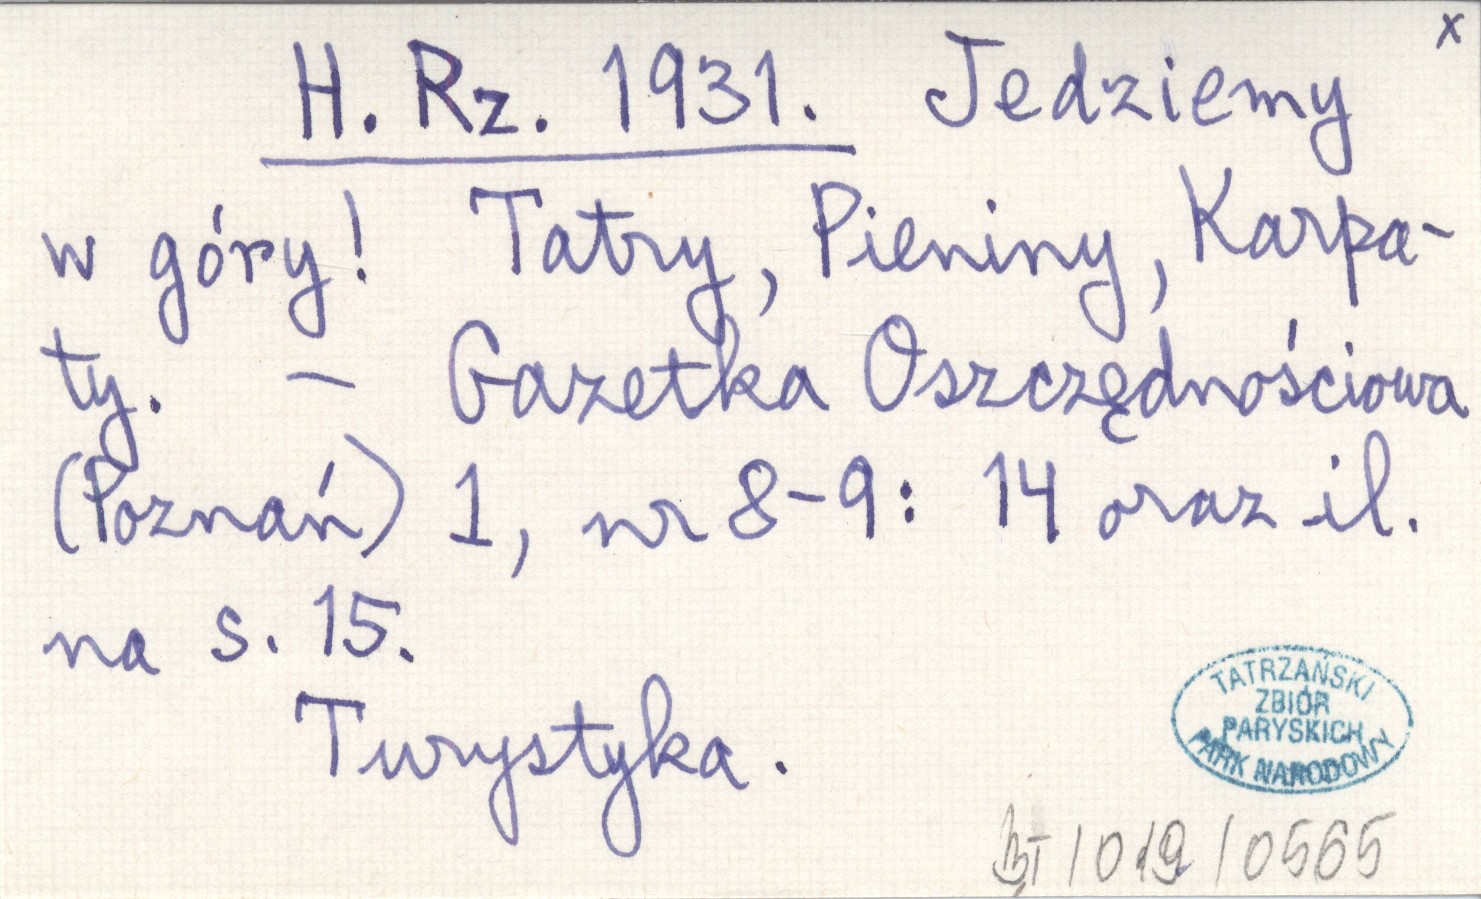 x
H. Rz. 1931. Jedziemy
w góry! Tatry, Pieniny, Karpa-
ty. — Gazetka Oszczędnościowa
(Poznań) 1, nr 8-9: 14 oraz il.
na s. 15.
Turystyka.
TATRZAŃSKI
ZBIÓR
PARYSKICH
PARK NARODOWY
BT/019/0565